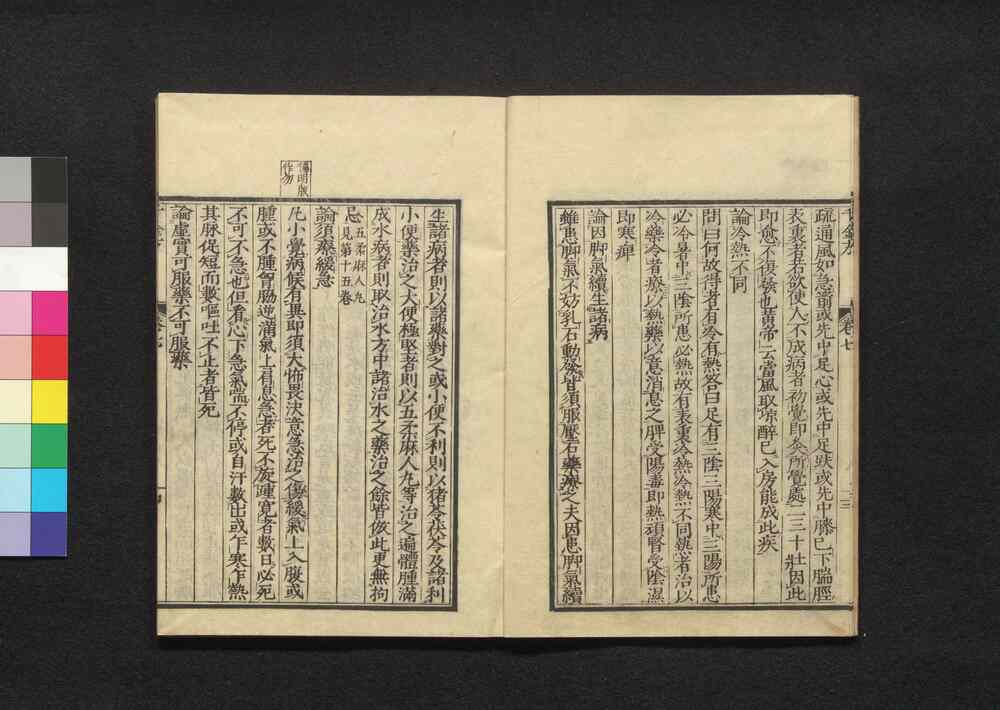 疏通風如急箭或先中足心或先中足趺或先中膝已下腨脛
表裏者若欲使人不成病者初覺即灸所覺處二三十壯因此
即愈不復發也黃帝云當風取涼醉已入房能成此疾
論冷熱不同
問曰何故得者有冷有熱答曰足有三陰三陽寒中三陽所患
必冷暑中三陰所患必熱故有表裏冷熱冷熱不同熱者治以
冷藥冷者療以熱藥以意消息之脾受陽毒即熱頑腎受陰濕
即寒痺
論因脚氣續生諸病
雖患脚氣不妨乳石動發皆須服壓石藥療之夫因患脚氣續
卷七
生諸病者則以諸藥對之或小便不利則以猪苓茯苓及諸利
小便藥治之大便極堅者則以五柔麻人丸等治之遍體腫滿
成水病者則取治水方中諸治水之藥治之餘皆倣此更無拘
忌五柔麻人丸見第十五卷
論須療緩急
凡小覺病候有異即須大怖畏決意急治之傷緩氣上入腹或
腫或不腫胷脇逆滿氣上肩息急者死不旋踵寬者數日必死
不可不急也但看心下急氣喘不停或自汗數出或乍寒乍熱
其脉促短而數嘔吐不止者皆死
論虛實可服藥不可服藥
傷明版
作勿